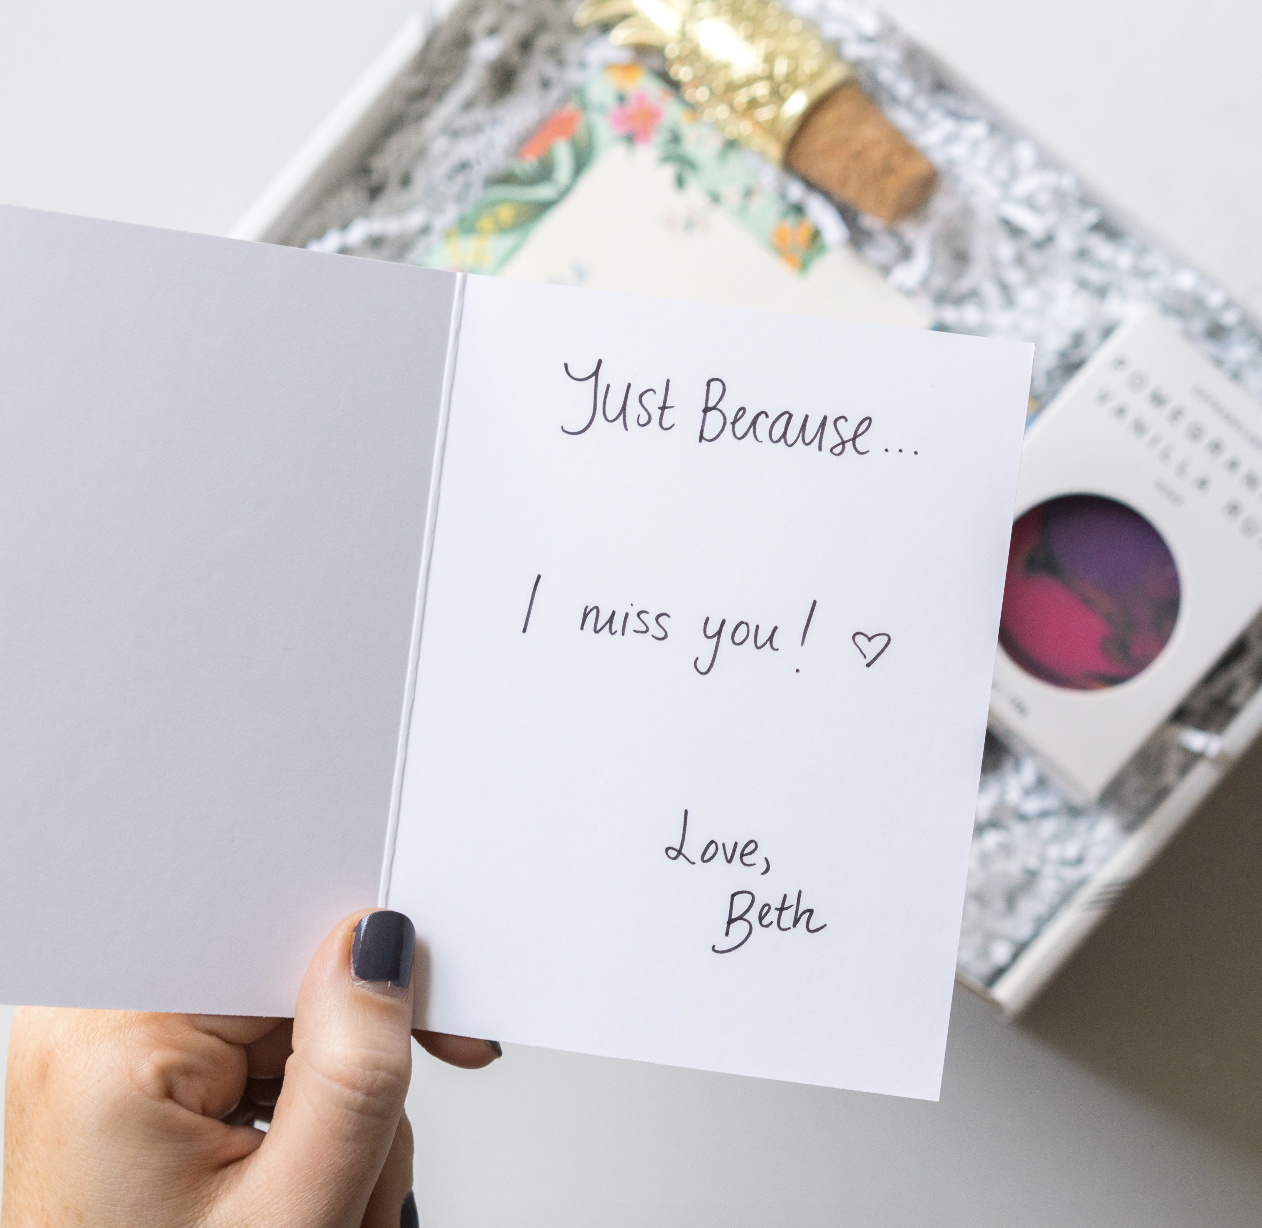 Just Because...
I miss you! ♡
Love,
Beth
VANILLA